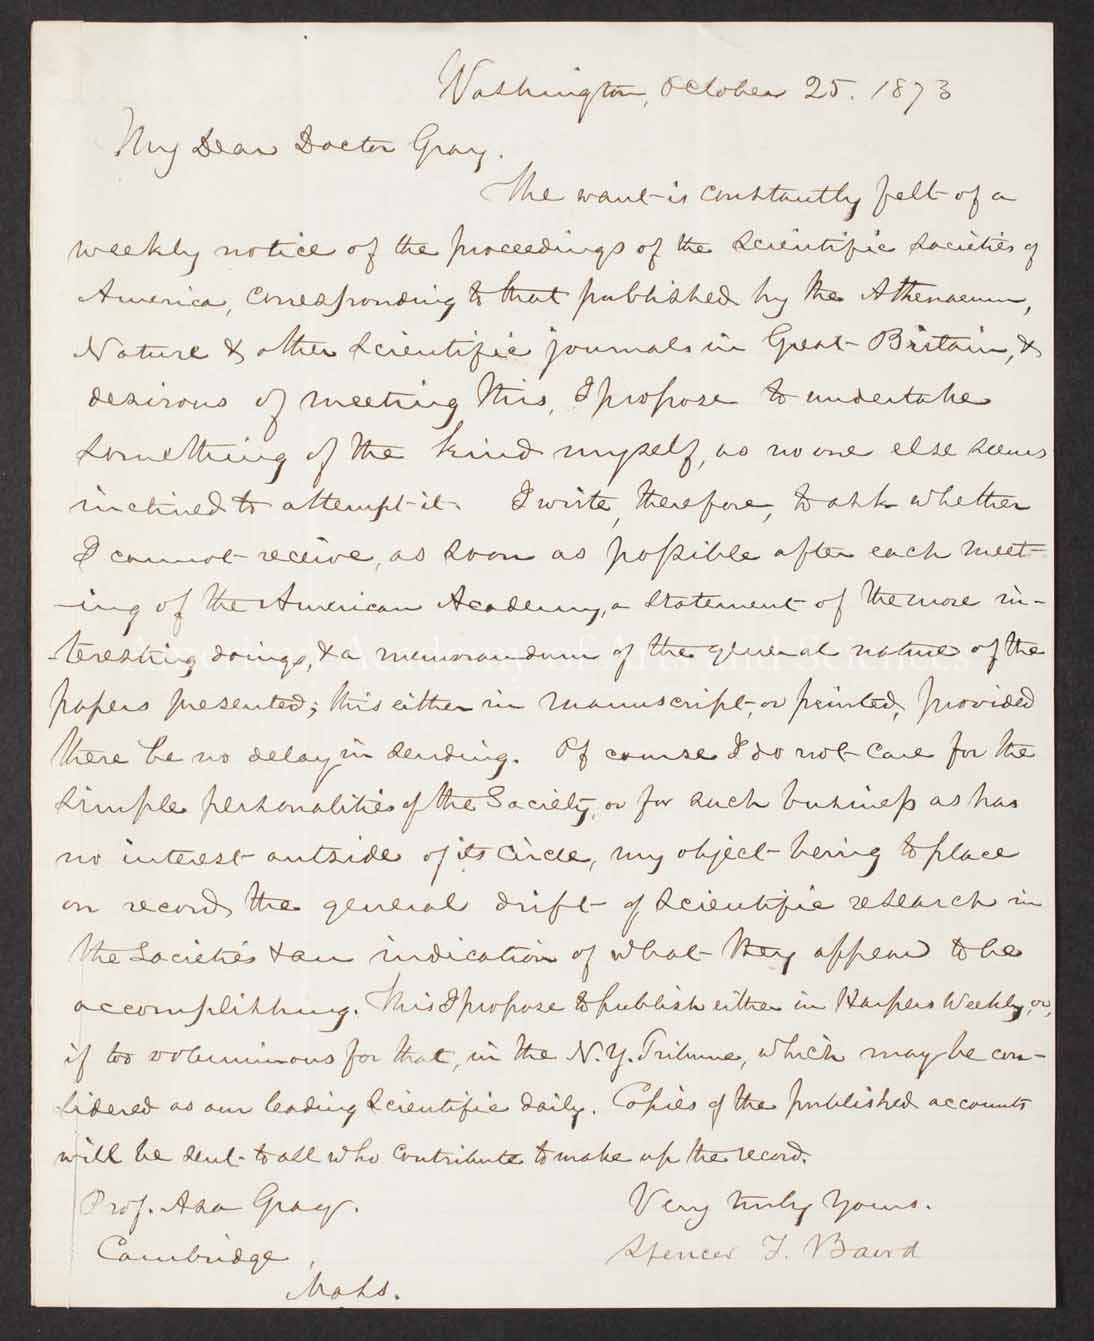 Washington, October 25. 1873
My Dear Doctor Gray.
The want is constantly felt of a
weekly notice of the proceedings of the Scientific Societies of
America, corresponding to that published by the Athenaeum,
Nature & other Scientific journals in Great Britain, &
desirous of meeting this, I propose to undertake
something of the kind myself, as no one else seems
inclined to attempt it. I write, therefore, to ask whether
I cannot receive, as soon as possible after each meet-
-ing of the American Academy, a statement of the more in-
-teresting doings, & a memorandum of the general nature of the
American Academy of Arts and Sciences
papers presented; this either in manuscript, or printed, provided
there be no delay in sending. Of course I do not care for the
simple personalities of the Society, or for such business as has
no interest outside of its circle, my object being to place
on record the general drift of scientific research in
the Societies & an indication of what they appear to be
accomplishing. This I propose to publish either in Harpers Weekly, or,
if too voluminous for that, in the N.Y. Tribune, which may be con-
sidered as our leading scientific daily. Copies of the published accounts
will be sent to all who contribute to make up the record.
Prof. Asa Gray. Very truly yours.
Cambridge, Spencer F. Baird
Mass.